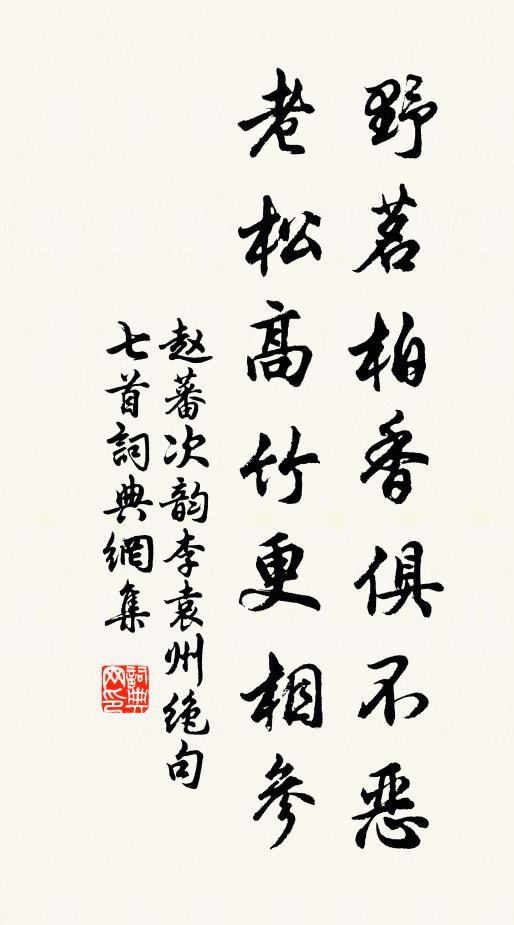 野茗柏香俱不惡
老松高竹更相參
赵蕃次韵李袁州绝句
七首詞典網集
詞典网印